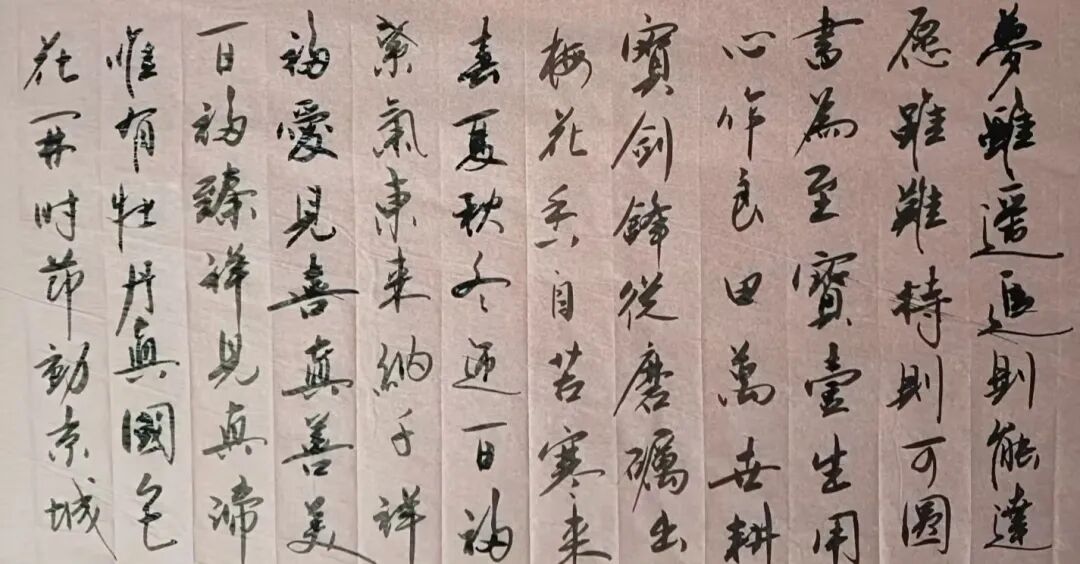 夢雖遥追則能達
愿雖難持則可圓
書為至寶壹生用
心作良田萬世耕
寶劍鋒從磨礪出
梅花香自苦寒来
春夏秋冬迎百福
紫氣東来納千祥
福愛見喜真善美
百福臻祥見真諦
惟有牡丹真國色
花開时節動京城